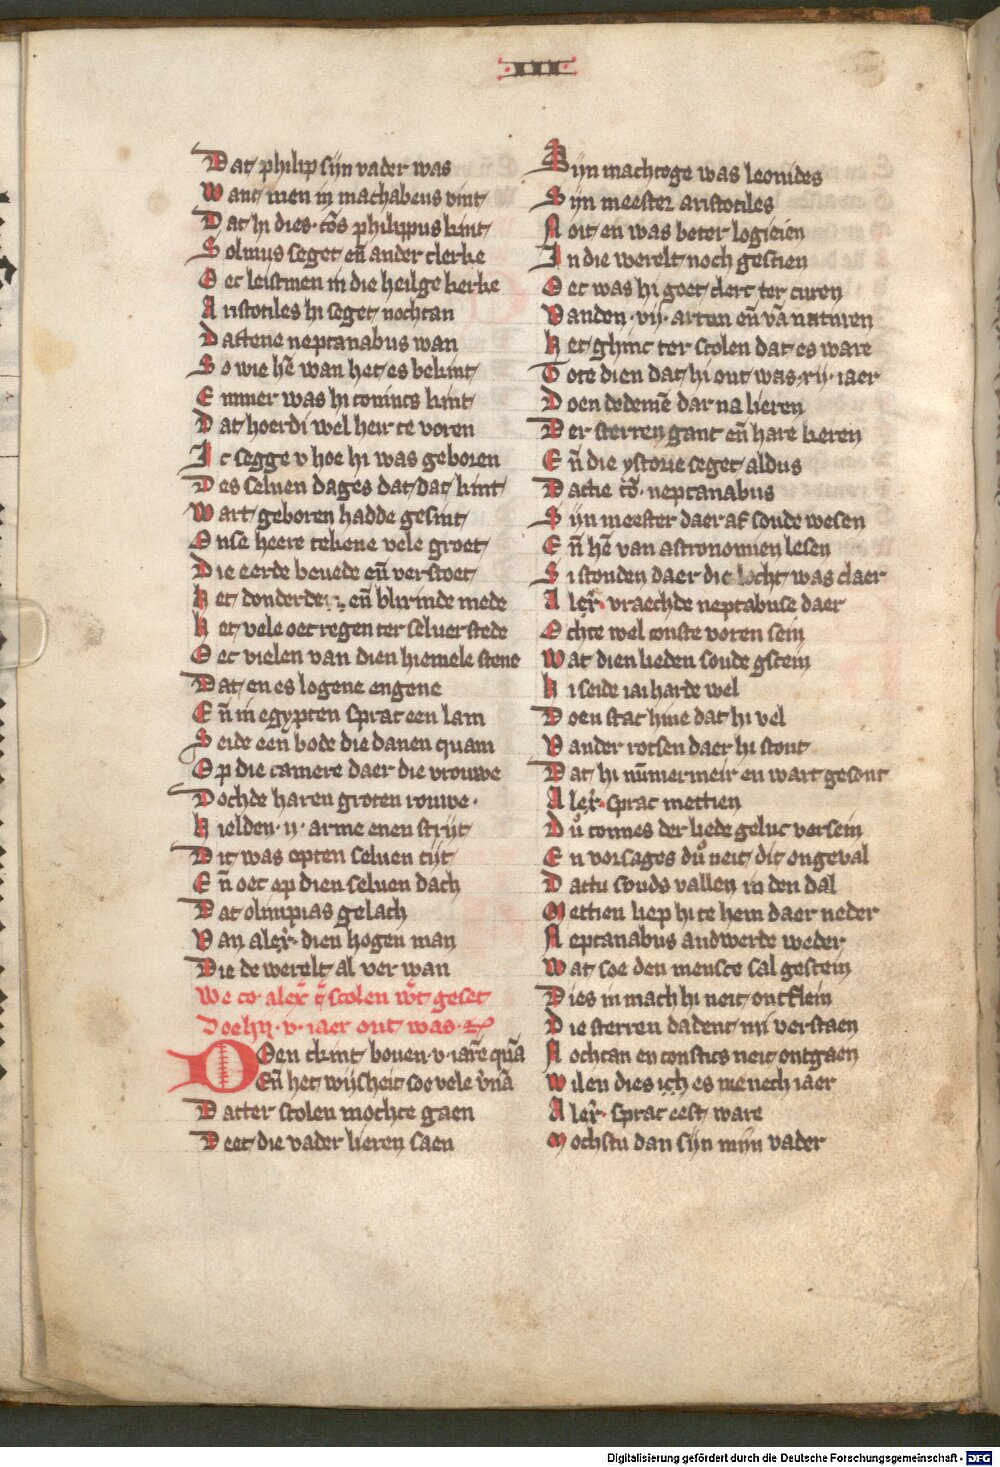 Dat philip sijn vader was
Want men in machabeus vint
Dat hi dies cō̄s philippus kint
Solinus seget en̄ ander clerke
Oec leistmen in die heilge kerke
Aristotiles hi seget nochtan
Dattene neptanabus wan
So wie hē wan het es bekint
Emmer was hi conincs kint
Dat hoerdi wel heir te voren
Ic segge v hoe hi was geboren
Des seluen dages dat dat kint
Wart geboren hadde gesint
Onse heere tekene vele groet
Die eerde beuede en̄ verstoet
Het donderde en̄ blixinde mede
Het vele oec regen ter seluer stede
Oec vielen van dien hiemele stene
Dat en es logene engene
En̄ in egypten sprac een lam
Seide een bode die danen quam
Op die camere daer die vrouwe
Dochde haren groten rouwe ·
Hielden · ii · arme enen strijt
Dit was opten seluen tijt
En̄ oec op dien seluen dach
Dat olimpias gelach
Van alex̄ · dien hogen man
Die de werelt al ver wan
We co · alex̄ t̄ scolen wt geset
Doe hij · v · iaer out was ·
Doen tkint bouen · v · iare quā
En̄ het wijsheit soe vele v̄nā
Datter scolen mochte gaen
Deet die vader lieren saen
Sijn machtoge was leonides
Sijn meester aristotiles
Noit en was beter logicien
In die werelt noch gescien
Oec was hi goet clerc ter curen
Vanden · vij · artun en̄ vā naturen
Het ghinc ter scolen dat es ware
Tote dien dat hi out was · xij · iaer
Doen dedemē dar na lieren
Der sterren ganc en̄ hare keren
En̄ die ystorie seget aldus
Datke cō̄ · neptanabus
Sijn meester daer af soude wesen
En̄ hē van astronomien lesen
Si stonden daer die locht was claer
Alex̄ · vraechde neptabuse daer
Ochte wel conste voren sein
Wat dien lieden soude gscein
Hi seide iai harde wel
Doen stac hine dat hi vel
Vander rotsen daer hi stont
Dat hi nūmermeir en wart gesont
Alex̄ · sprac mettien
Du connes der liede geluc versein
En versages du neit dit ongeval
Dattu souds vallen in den dal
Mettien liep hi te hem daer neder
Neptanabus andwerde weder
Wat soe den mensce sal gescein
Dies in mach hi neit ontflein
Die sterren dadent mi verstaen
Nochtan en constics neit ontgaen
Wilen dies ich es menech iaer
Alex̄ · sprac eest ware
Mochstu dan sijn mijn vader
Digitalisierung gefördert durch die Deutsche Forschungsgemeinschaft - DFG